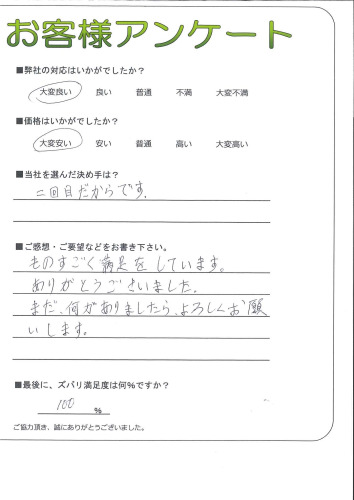 お客様アンケート
■弊社の対応はいかがでしたか？
大変良い 良い 普通 不満 大変不満
■価格はいかがでしたか？
大変安い 安い 普通 高い 大変高い
■当社を選んだ決め手は？
二回目だからです.
■ご感想・ご要望などをお書き下さい。
ものすごく満足をしています。
ありがとうございました。
まだ、何がありましたら、よろしくお願
いします。
■最後に、ズバリ満足度は何%ですか？
100 %
ご協力頂き、誠にありがとうございました。